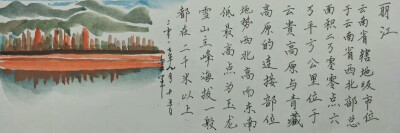 丽江
云南省辖地级市位
于云南省西北部总
面积二万零零点六
万平方公里位于
云贵高原与青藏
高原的连接部位
地势西北高而东南
低最高点为玉龙
雪山主峰海拔一般
都在二千米以上